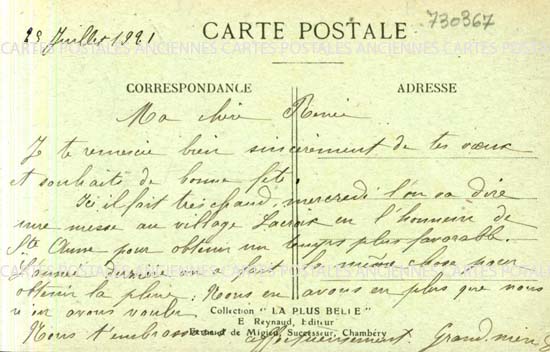 23 Juillet 1921
CARTE POSTALE
730367
ANCIENNES CARTES POSTALES ANCIENNES CARTES POSTALES
CORRESPONDANCE
ADRESSE
Ma chère Renée
Je te remercie bien sincèrement de tes vœux
et souhaits de bonne fête.
Ici il fait très chaud, mercredi l'on va dire
une messe au village Lacroix en l'honneur de
Ste Anne pour obtenir un temps plus favorable.
L'année dernière on a fait la même chose pour
obtenir la pluie. Nous en avons eu plus que nous
n'en avons voulu
Collection "LA PLUS BELLE"
E Reynaud, Editeur
Nous t'embrassons affectueusement Grand-mère
Reynaud de Migieu, Successeur, Chambéry